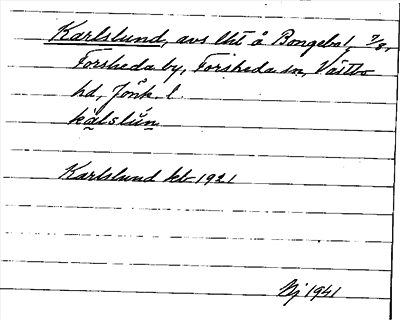 Karlslund, avs lht å Bongebol, 7/8,
Forsheda by, Forsheda sn, Västbo
hd, Jönk. l.
kàlslún
Karlslund kb 1921
Nj 1941